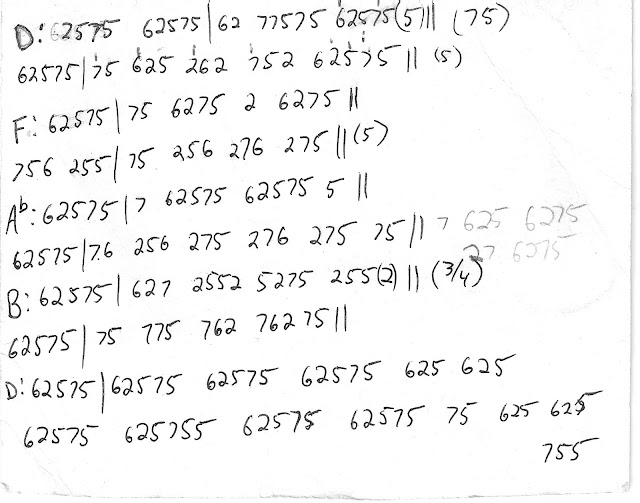 D: 62575 62575 | 62 77575 62575(5) || (75)
62575 | 75 625 262 752 62575 || (5)
F: 62575 | 75 6275 2 6275 ||
756 255 | 75 256 276 275 || (5)
Ab: 62575 | 7 62575 62575 5 ||
62575 | 76 256 275 276 275 75 || 7 625 6275
27 6275
B: 62575 | 627 2552 5275 255(2) || (3/4)
62575 | 75 775 762 762 75 ||
D: 62575 | 62575 62575 62575 625 625
62575 625755 62575 62575 75 625 625
755